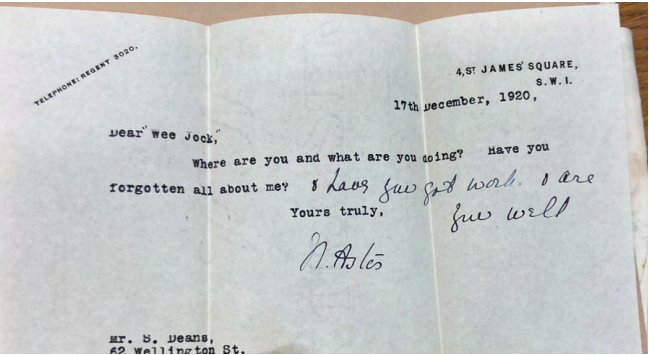 TELEPHONE: REGENT 3020.
4, ST JAMES' SQUARE,
S.W.1.
17th December, 1920,
Dear "Wee Jock,"
Where are you and what are you doing? Have you
forgotten all about me? & have you got work. & are
you well
Yours truly,
N. Astor
Mr. S. Deans,
62 Wellington St.